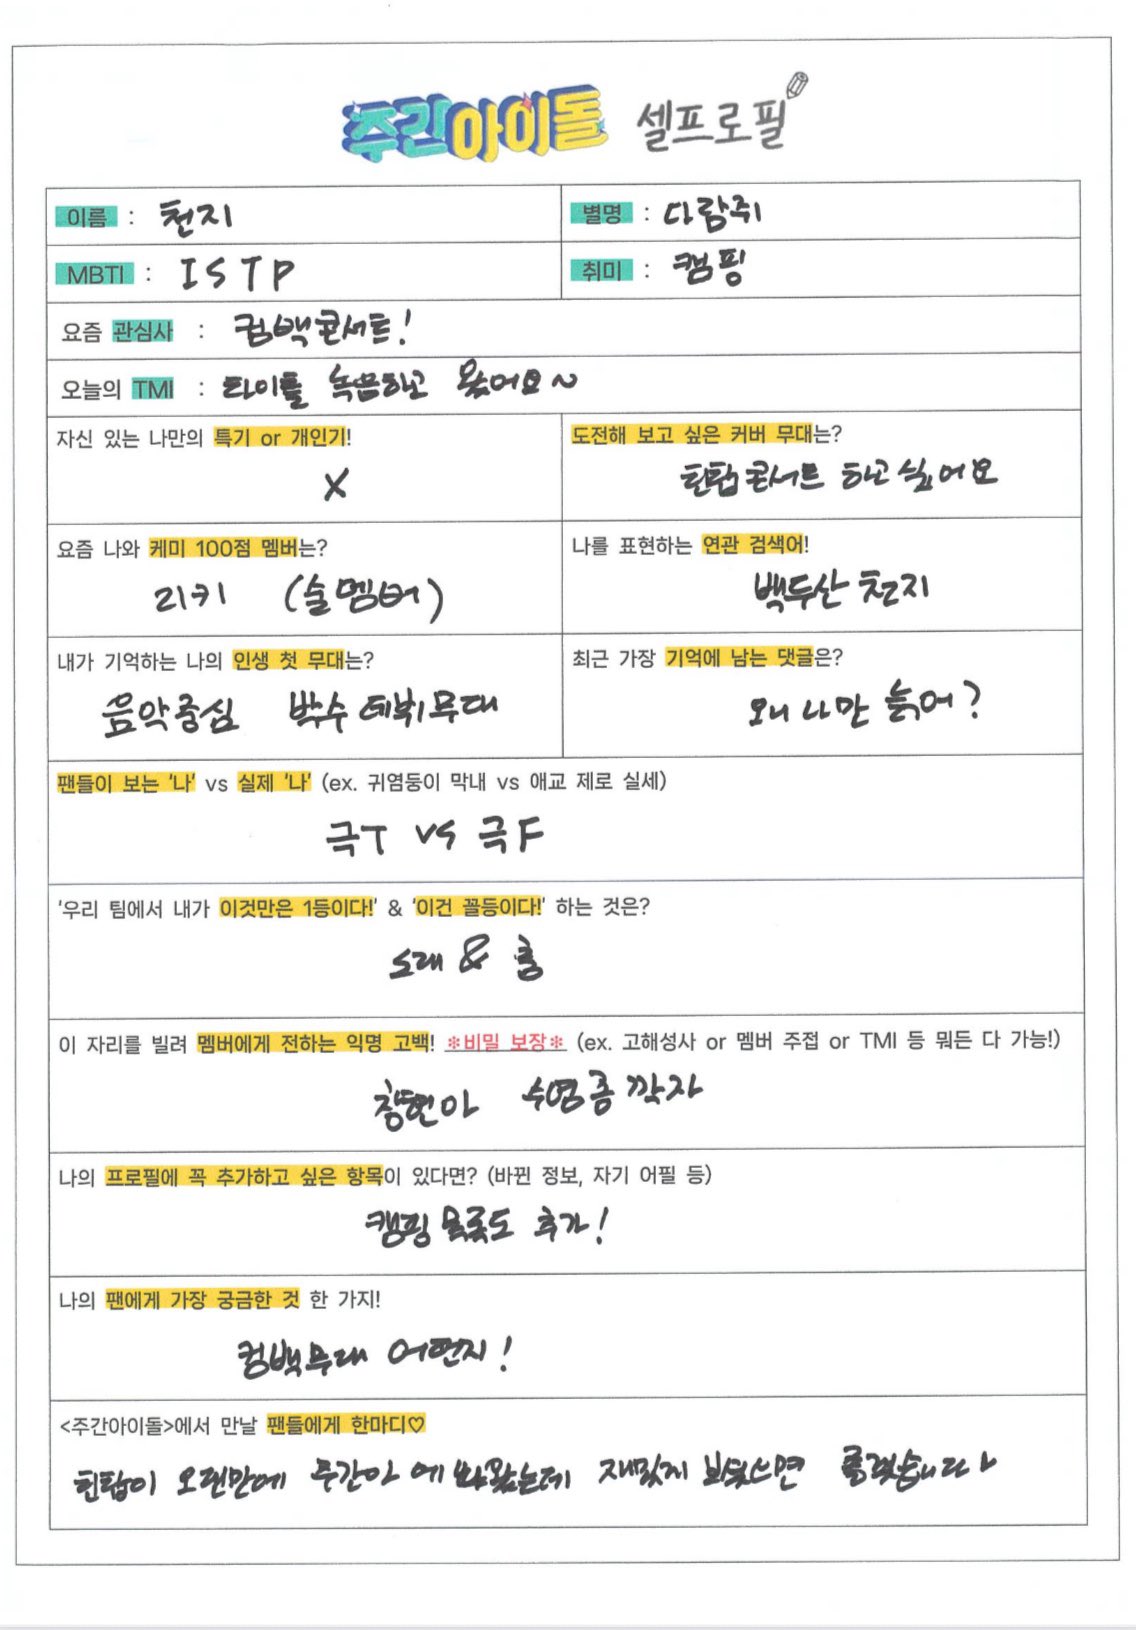 주간아이돌 셀프로필
이름 : 천지
별명 : 다람쥐
MBTI : ISTP
취미 : 캠핑
요즘 관심사 : 컴백콘서트!
오늘의 TMI : 타이틀 녹음하고 왔어요~
자신 있는 나만의 특기 or 개인기!
X
도전해 보고 싶은 커버 무대는?
틴탑콘서트 하고싶어요
요즘 나와 케미 100점 멤버는?
리키 (술멤버)
나를 표현하는 연관 검색어!
백두산 천지
내가 기억하는 나의 인생 첫 무대는?
음악중심 박수 데뷔무대
최근 가장 기억에 남는 댓글은?
왜 나만 늙어?
팬들이 보는 '나' vs 실제 '나' (ex. 귀염둥이 막내 vs 애교 제로 실세)
극T vs 극F
'우리 팀에서 내가 이것만은 1등이다!' & '이건 꼴등이다!' 하는 것은?
노래 & 춤
이 자리를 빌려 멤버에게 전하는 익명 고백! *비밀 보장* (ex. 고해성사 or 멤버 주접 or TMI 등 뭐든 다 가능!)
창현아 수염좀 깎자
나의 프로필에 꼭 추가하고 싶은 항목이 있다면? (바뀐 정보, 자기 어필 등)
캠핑 목록도 추가!
나의 팬에게 가장 궁금한 것 한 가지!
컴백무대 어떤지!
<주간아이돌>에서 만날 팬들에게 한마디♡
틴탑이 오랜만에 주간아 에 나왔는데 재밌게 보셨으면 좋겠습니다~